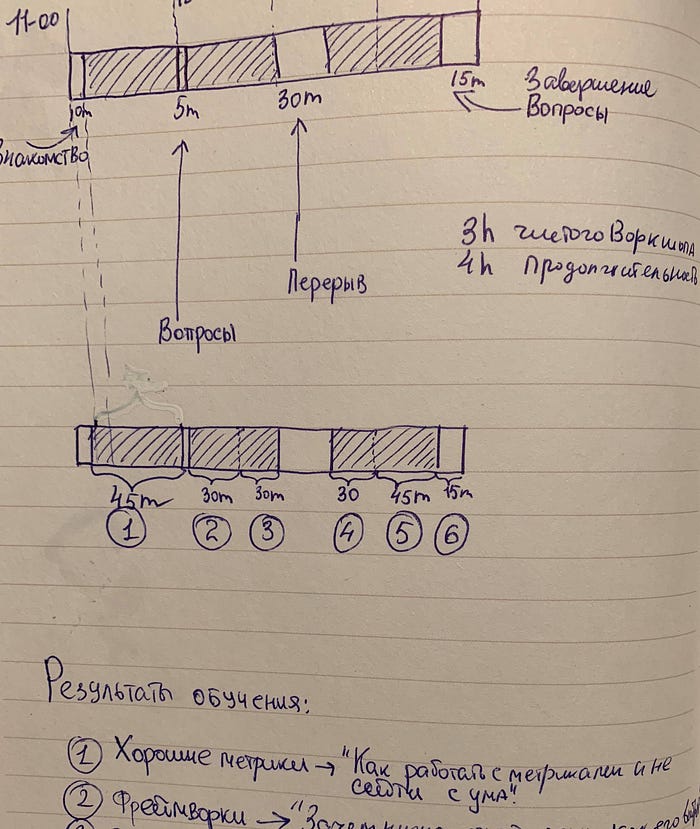 11-00
10m
5m
30m
15m
Завершение
Вопросы
Знакомство
3h чистого Воркшопа
4h Продолжительность
Перерыв
Вопросы
45m 30m 30m 30 45m 15m
1 2 3 4 5 6
Результаты обучения:
1 Хорошие метрики → "Как работать с метриками и не
сойти с ума".
2 Фреймворки → "Зачем